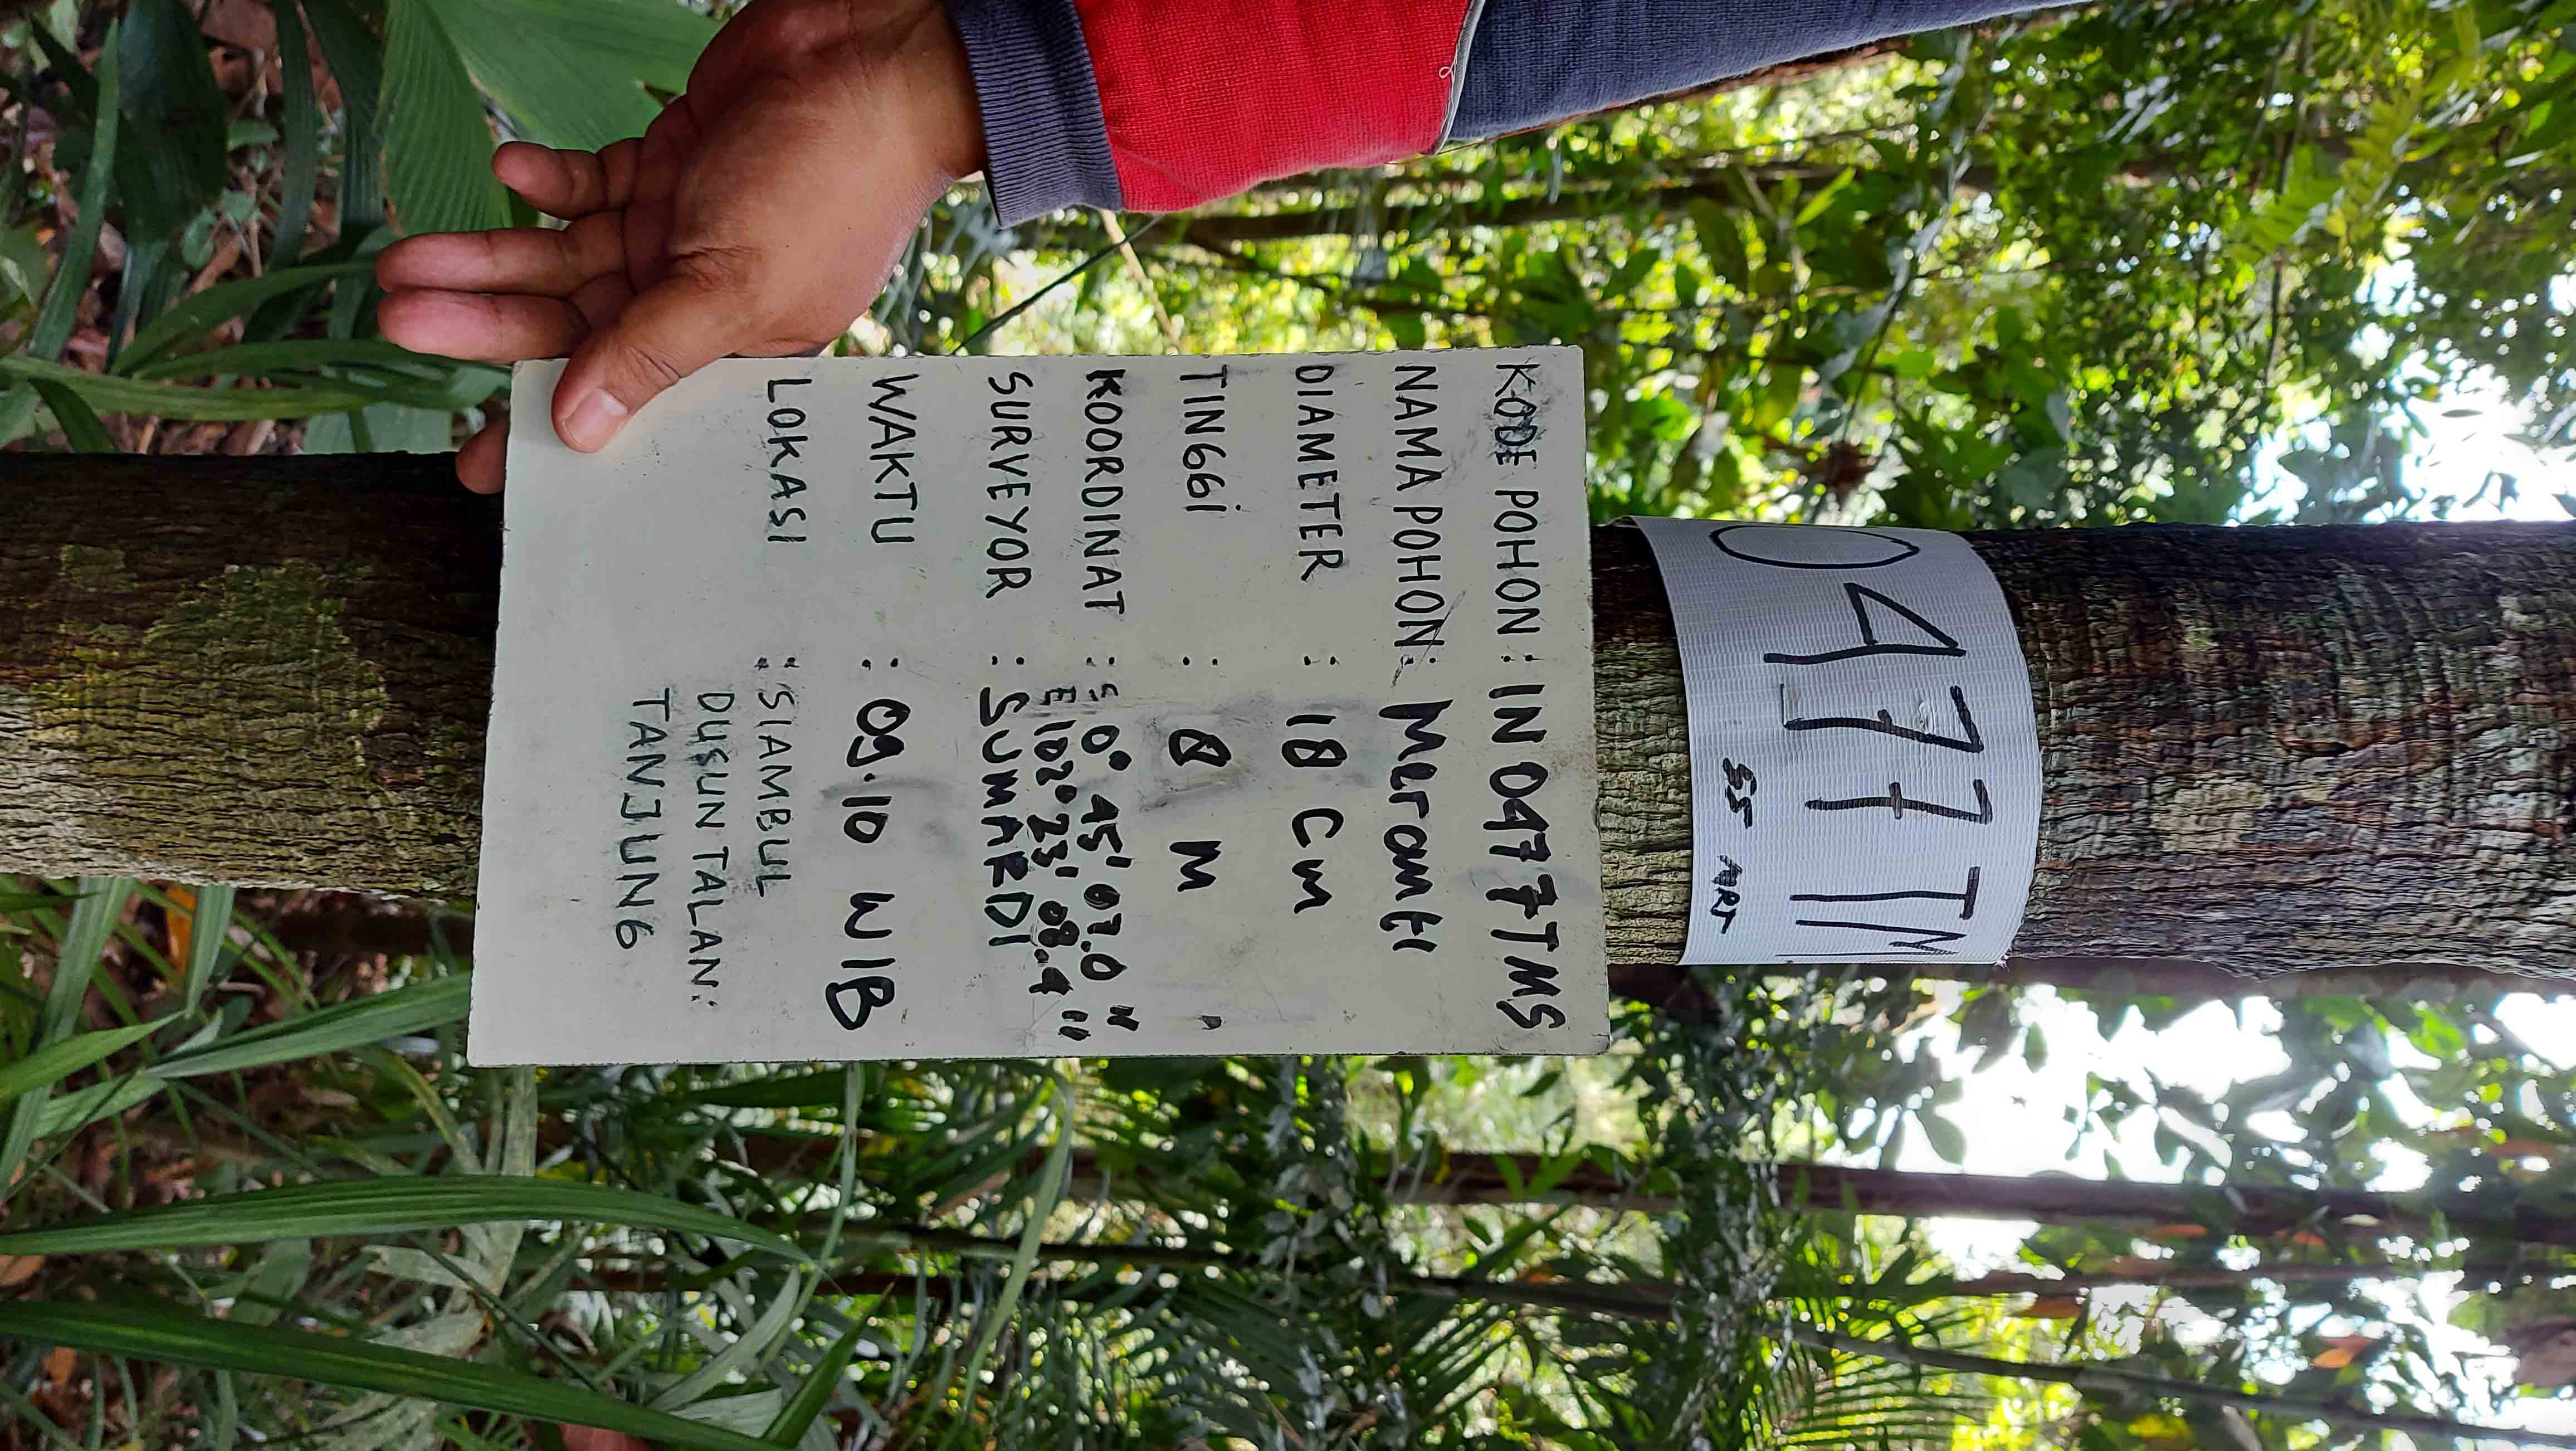 0477 TM
55 MRT
KODE POHON : IN 0477 TMS
NAMA POHON : Meranti
DIAMETER : 18 CM
TINGGi : 8 M
KOORDINAT : S 0° 45' 07.0"
E 102° 23' 08.4"
SURVEYOR : SUMARDI
WAKTU : 09.10 WIB
LOKASI : SIAMBUL
DUSUN TALAN:
TANJUNG